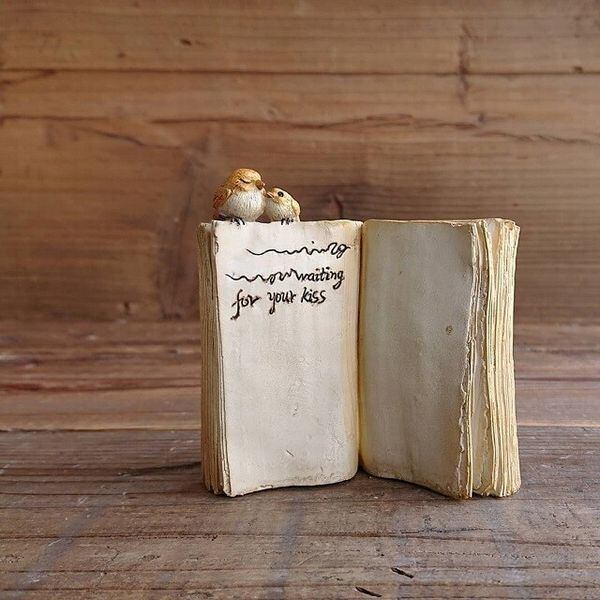 waiting
for your kiss